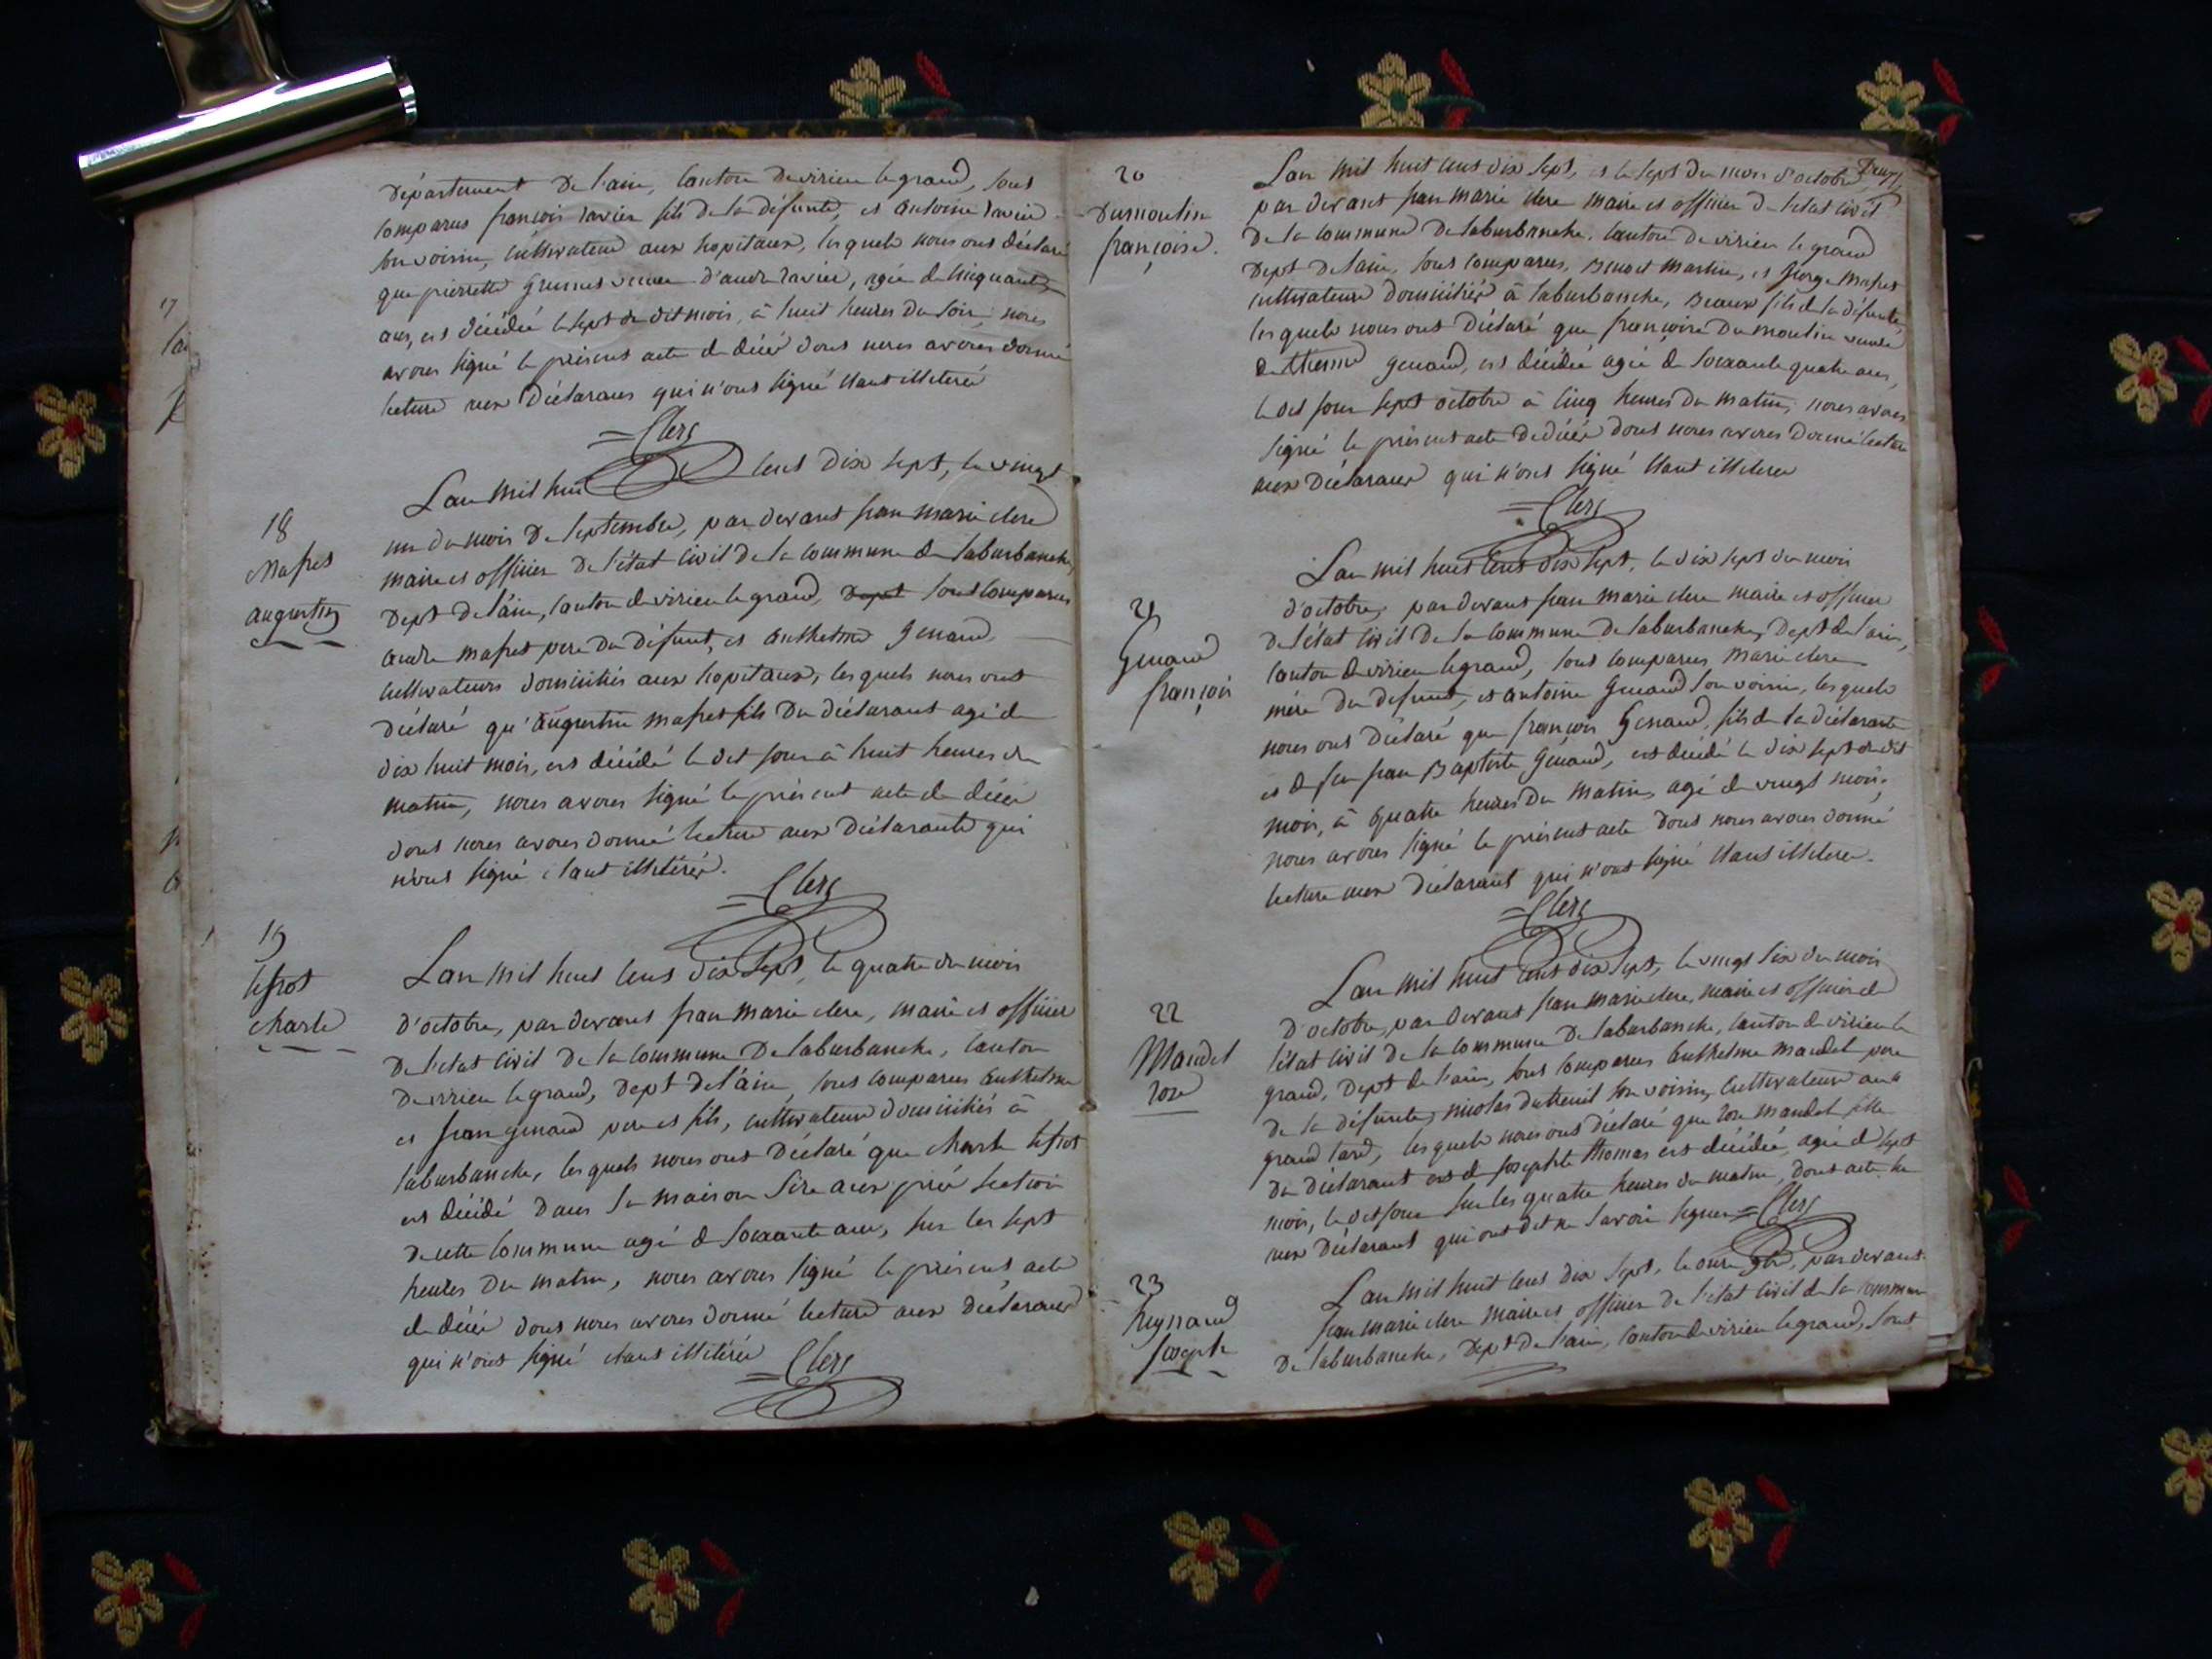 département de l'ain, canton de virieu le grand, sont
comparus françois ravier fils de la défunte, et antoine ravier
son voisin, cultivateur aux hopitaux, lesquels nous ont déclaré
que pierrette veuve d'andre ravier, agée de cinquante
ans, est décédée le sept du dit mois, à huit heures du soir, nous
avons signé le présent acte de décès dont nous avons donné
lecture aux déclarans qui n'ont signé étant illeteré
=Clerc
18
Masset
augustin
Lan mil huit cent dix sept, le vingt
un du mois de septembre, par devant jean marie clerc
maire et officier de l'état civil de la commune de laburbanche,
dept de l'ain, canton de virieu le grand, dept sont comparus
andre masset pere du défunt, et anthelme genand
cultivateurs domiciliés aux hopitaux, lesquels nous ont
déclaré qu'augustin masset fils du déclarant agé de
dix huit mois, est décédé le dit jour à huit heures du
matin, nous avons signé le présent acte de décès
dont nous avons donné lecture aux déclarants qui
n'ont signé étant illitérés.
=Clerc
19
charle
Lan mil huit cent dix sept, le quatre du mois
d'octobre, par devant jean marie clerc, maire et officier
de l'etat civil de la commune de laburbanche, canton
de virieu le grand, dept de l'ain, sont comparus anthelme
et jean genand pere et fils, cultivateurs domiciliés à
laburbanche, lesquels nous ont déclaré que charle
est décédé dans sa maison section
de cette commune agé de soixante ans, sur les sept
heures du matin, nous avons signé le présent acte
de décès dont nous avons donné lecture aux déclarans
qui n'ont signé étant illitérés
=Clerc
20
Dumoulin
françoise.
Lan mil huit cent dix sept, et le sept du mois d'octobre,
par devant jean marie clerc maire et officier de l'etat civil
de la commune de laburbanche, canton de virieu le grand
dept de l'ain, sont comparus, Benoit Martin, et george masset
cultivateurs domiciliés à laburbanche, Beaux fils de la défunte,
lesquels nous ont déclaré que françoise Dumoulin veuve
genand, est décédée agée de soixante quatre ans,
le dit jour sept octobre à cinq heures du matin, nous avons
signé le présent acte de décès dont nous avons donné lecture
aux déclarans qui n'ont signé étant illiteres
=Clerc
21
Genand
françois
Lan mil huit cent dix sept, le dix sept du mois
d'octobre, par devant jean marie clerc maire et officier
de l'état civil de la commune de laburbanche, dept de l'ain,
canton de virieu le grand, sont comparus marie clerc
mère du defunt, et antoine genand son voisin, lesquels
nous ont déclaré que françois Genand, fils de la déclarante
et de feu jean Baptiste Génand, est décédé le dix sept du dit
mois, à quatre heures du matin, agé de vingt mois,
nous avons signé le présent acte dont nous avons donné
lecture aux déclarant qui n'ont signé étant illiteres.
=Clerc
22
Mandet
rose
Lan mil huit cent dix sept, le vingt six du mois
d'octobre, par devant jean marie clerc, maire et officier de
l'état civil de la commune de laburbanche, canton de virieu le
grand, dept de l'ain, sont comparus anthelme mandet pere
de la défunte, nicolas dutreuil son voisin, cultivateurs au
lesquels nous ont déclaré que rose mandet fille
du déclarant et de josephte thomas est décédée, agée de sept
mois, le dit jour sur les quatre heures du matin, dont acte lu
aux déclarant qui ont dit ne savoir signer =Clerc
23
Reynaud
joseph
Lan mil huit cent dix sept, le onze par devant
jean marie clerc maire et officier de l'etat civil de la commune
de laburbanche, dept de l'ain, canton de virieu le grand, sont